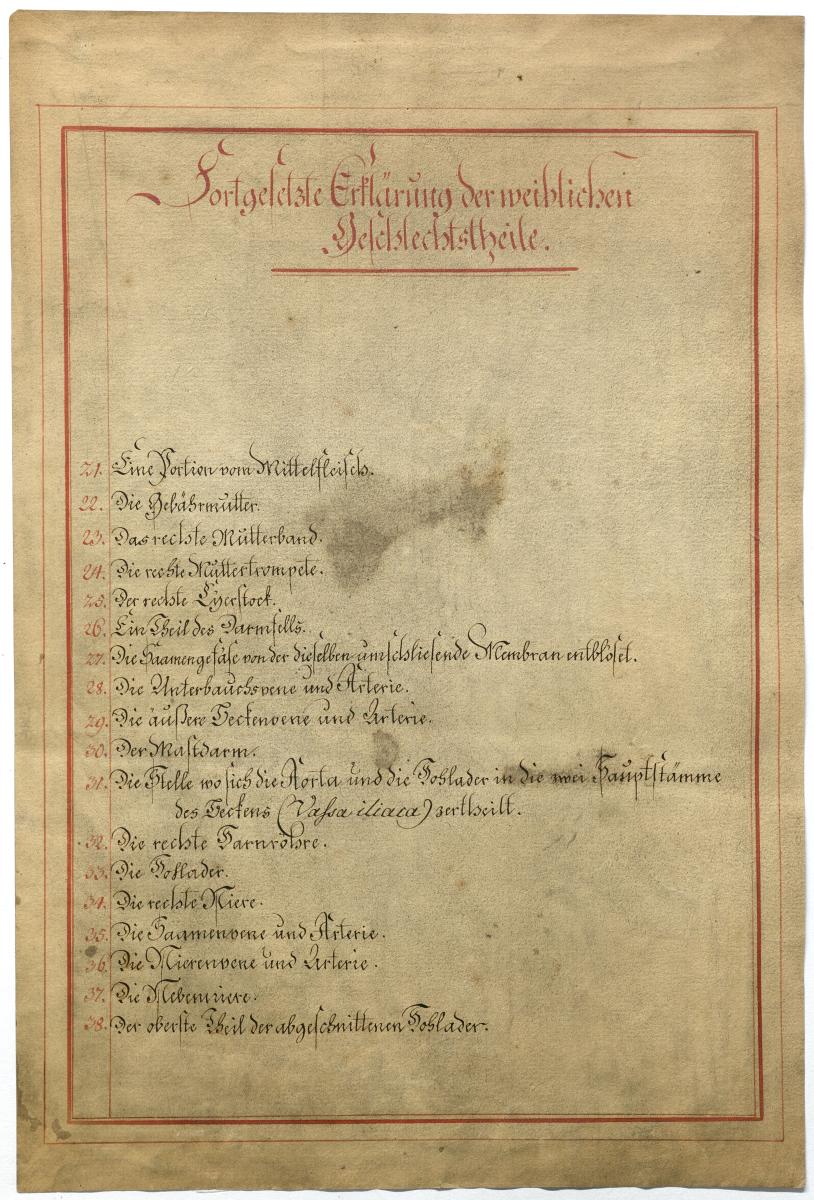 Fortgesetzte Erklärung der weiblichen
Geschlechtstheile.
21. Eine Portion vom Mittelfleisch.
22. Die Gebährmutter.
23. Das rechte Mutterband.
24. Die rechte Muttertrompete.
25. Der rechte Eyerstock.
26. Ein Theil des Darmfells.
27. Die Saamengefäse von der dieselben umschliesende Membran entblöset.
28. Die Unterbauchsvene und Arterie.
29. Die äußere Beckenvene und Arterie.
30. Der Mastdarm.
31. Die Stelle wo sich die Aorta und die Hohlader in die zwei Hauptstämme
des Beckens (Vassa iliaca) zertheilt.
32. Die rechte Harnröhre.
33. Die Hohlader.
34. Die rechte Niere.
35. Die Saamenvene und Arterie.
36. Die Nierenvene und Arterie.
37. Die Nebenniere.
38. Der oberste Theil der abgeschnittenen Hohlader.